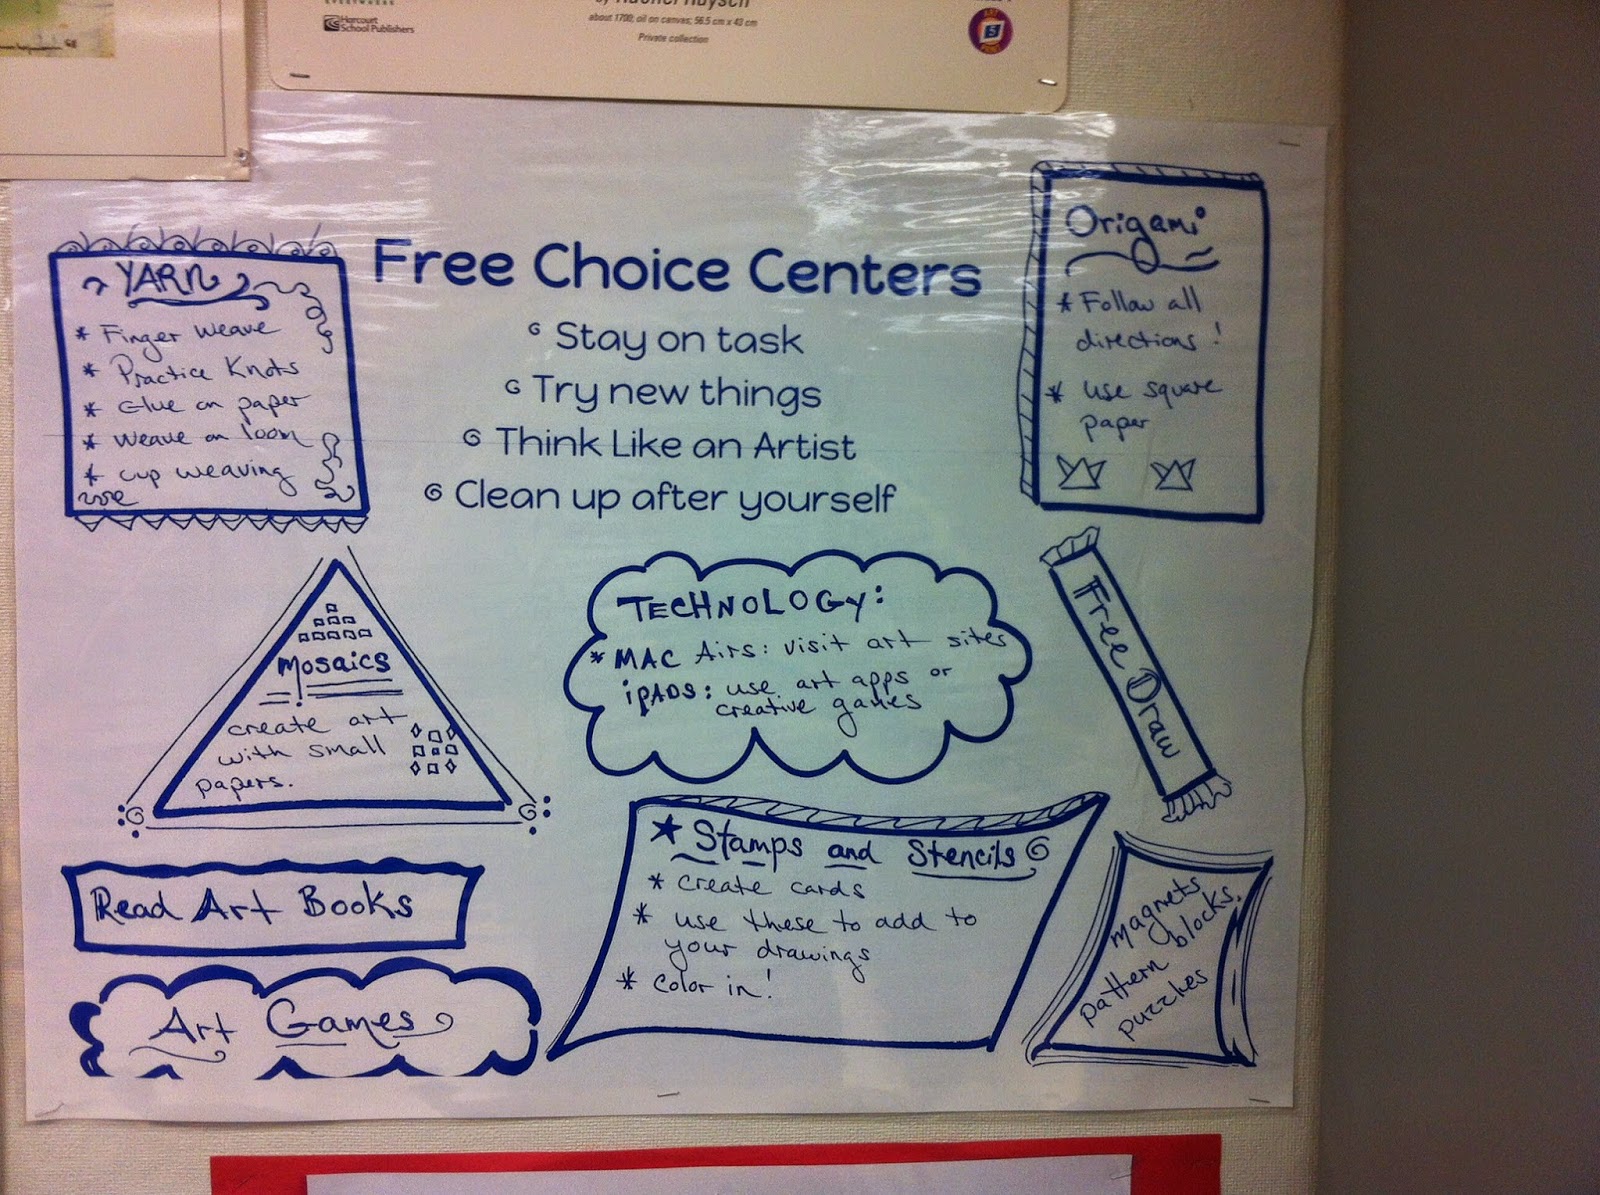 Harcourt
School Publishers
about 1700; oil on canvas; 56.5 cm x 43 cm
Private collection
ART
5
Free Choice Centers
Stay on task
Try new things
Think Like an Artist
Clean up after yourself
YARN
* Finger weave
* Practice Knots
* Glue on paper
* Weave on loom
* cup weaving
Origami
* Follow all
directions!
* use square
paper
mosaics
create art
with small
papers.
TECHNOLOGY:
* MAC Airs: visit art sites
iPADS: use art apps or
creative games
Free Draw
Read Art Books
Art Games
Stamps and Stencils
* create cards
* use these to add to
your drawings
* color in!
magnets
blocks,
pattern
puzzles